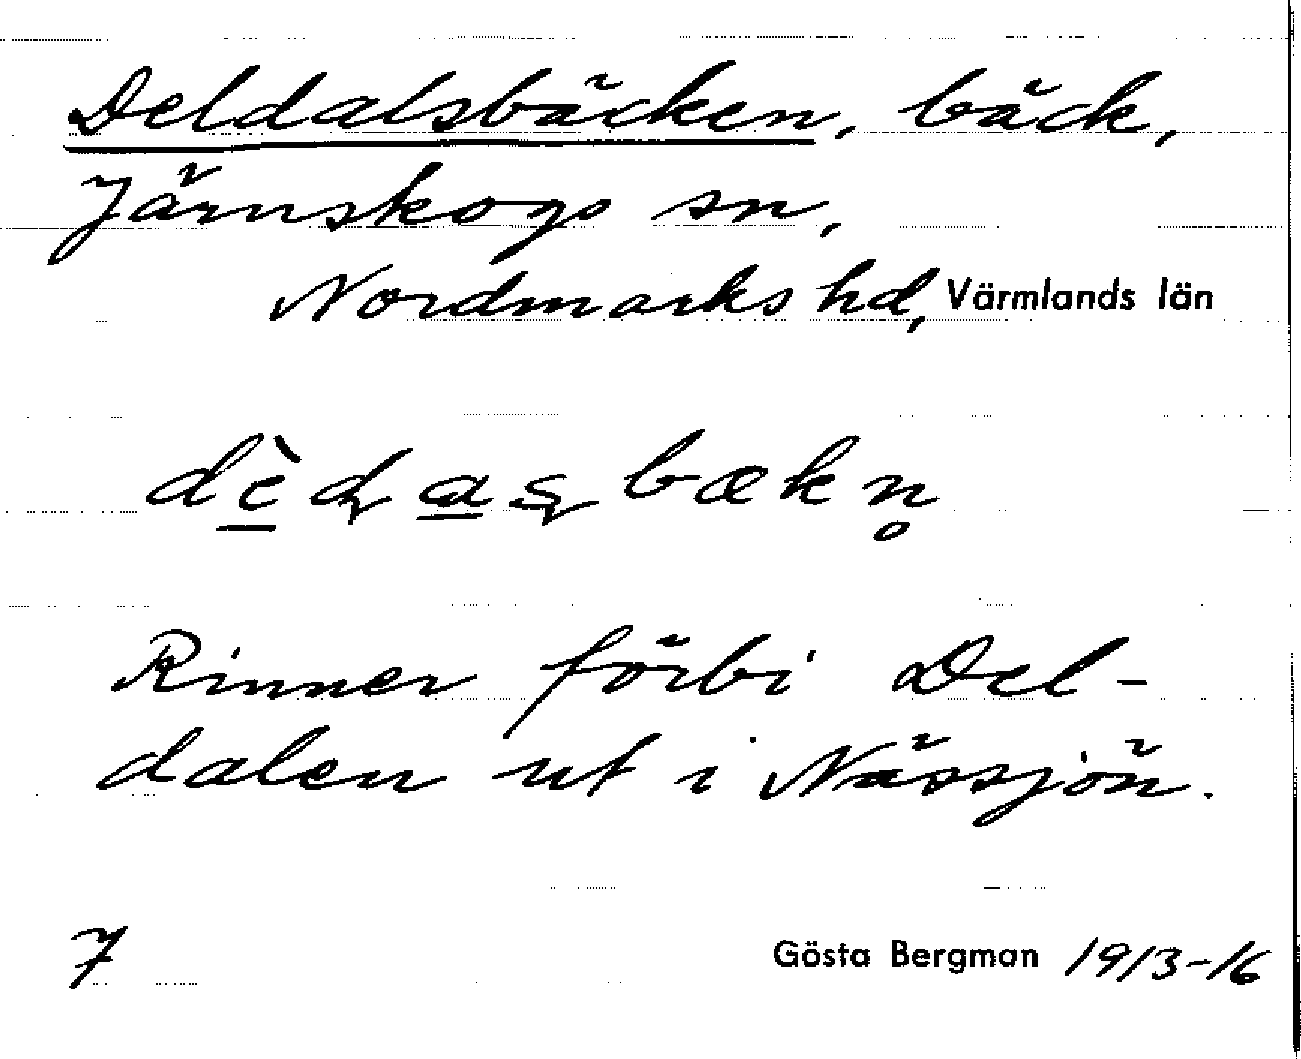 Deldalsbäcken, bäck,
Järnskogs sn,
Nordmarks hd, Värmlands län
dè̱ɖa̱ʂbækn̥
Rinner förbi Del-
dalen ut i Nässjön.
7 Gösta Bergman 1913-16